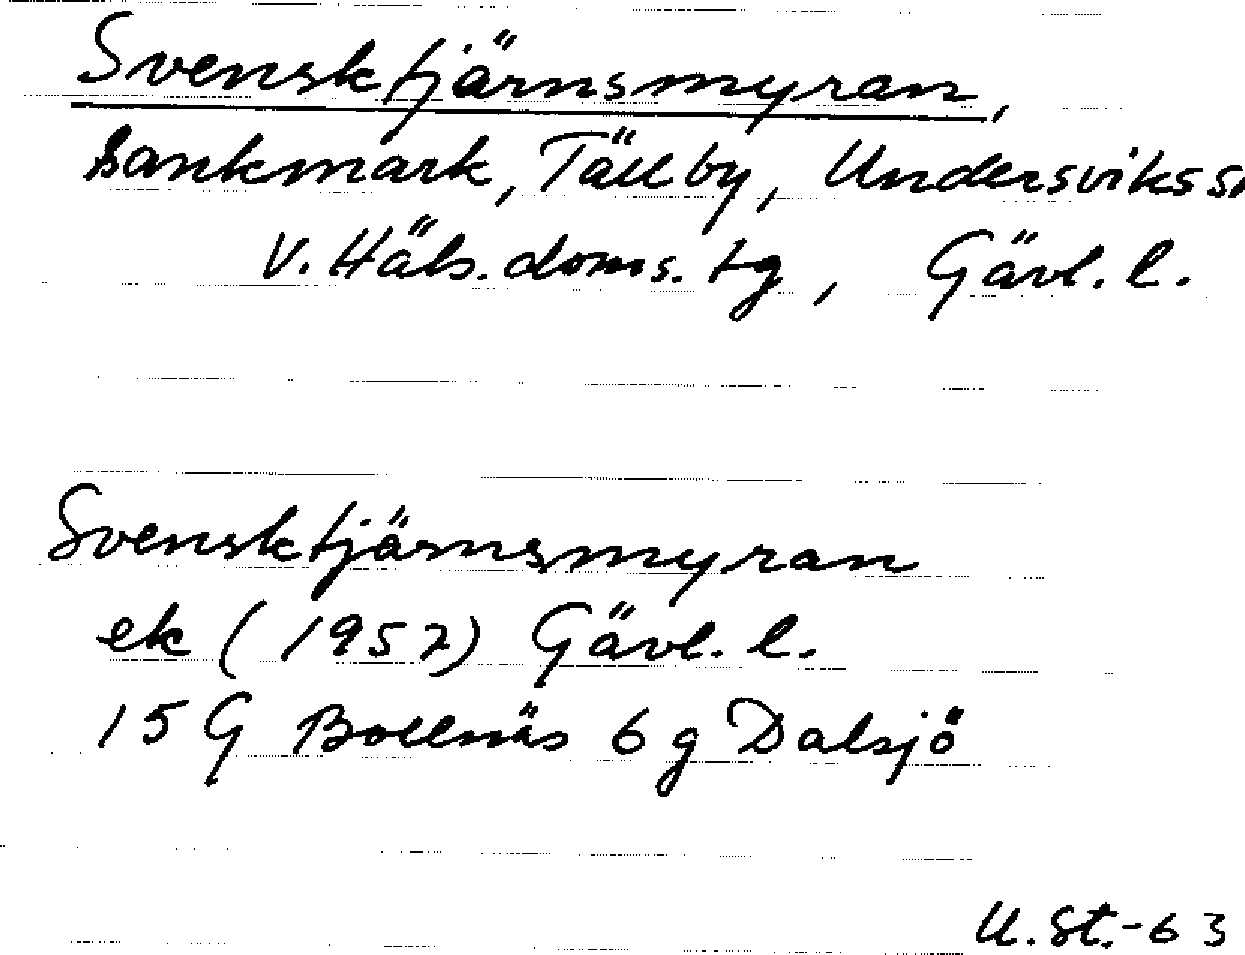 Svensktjärnsmyran,
sankmark, Tällby, Undersviks sn
V. Häls. doms. tg, Gävl. l.
Svensktjärnsmyran
ek (1952) Gävl. l.
15 G Bollnäs 6 g Dalsjö
U. St. - 63